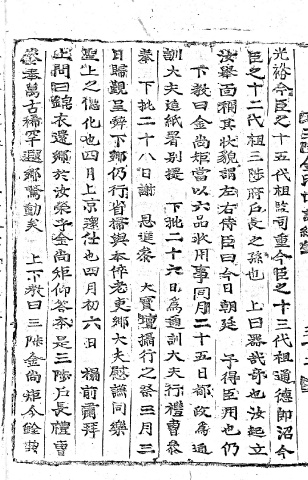 光裕今臣之十五代祖監司重今臣之十三代祖道德師沼今
臣之十二代祖三陟府戶長之孫也 上曰器哉奇也汝起立
汝擧面相其狀貌謂左右侍臣曰今日朝廷 予得臣用也仍
下教曰金尙矩當以六品收用事同月二十五日都政爲通
訓大夫造紙署別提 下批二十六日爲通訓大夫行禮曹參
奉 下批二十八日謝 恩進參 大寶壇攝行之祭三月三
日歸覲呈辭下鄕仍行省掃與本倅老吏鄕大夫慰諭同樂
聖上之催化也四月上京溧仕也四月初六日 榻前肅拜
上問曰錦衣還鄕於汝榮乎金尙矩仰答奉是三陟戶長禮曹
參奉萬古稀罕遐鄕驚動矣 上下教曰三陟金尙矩今